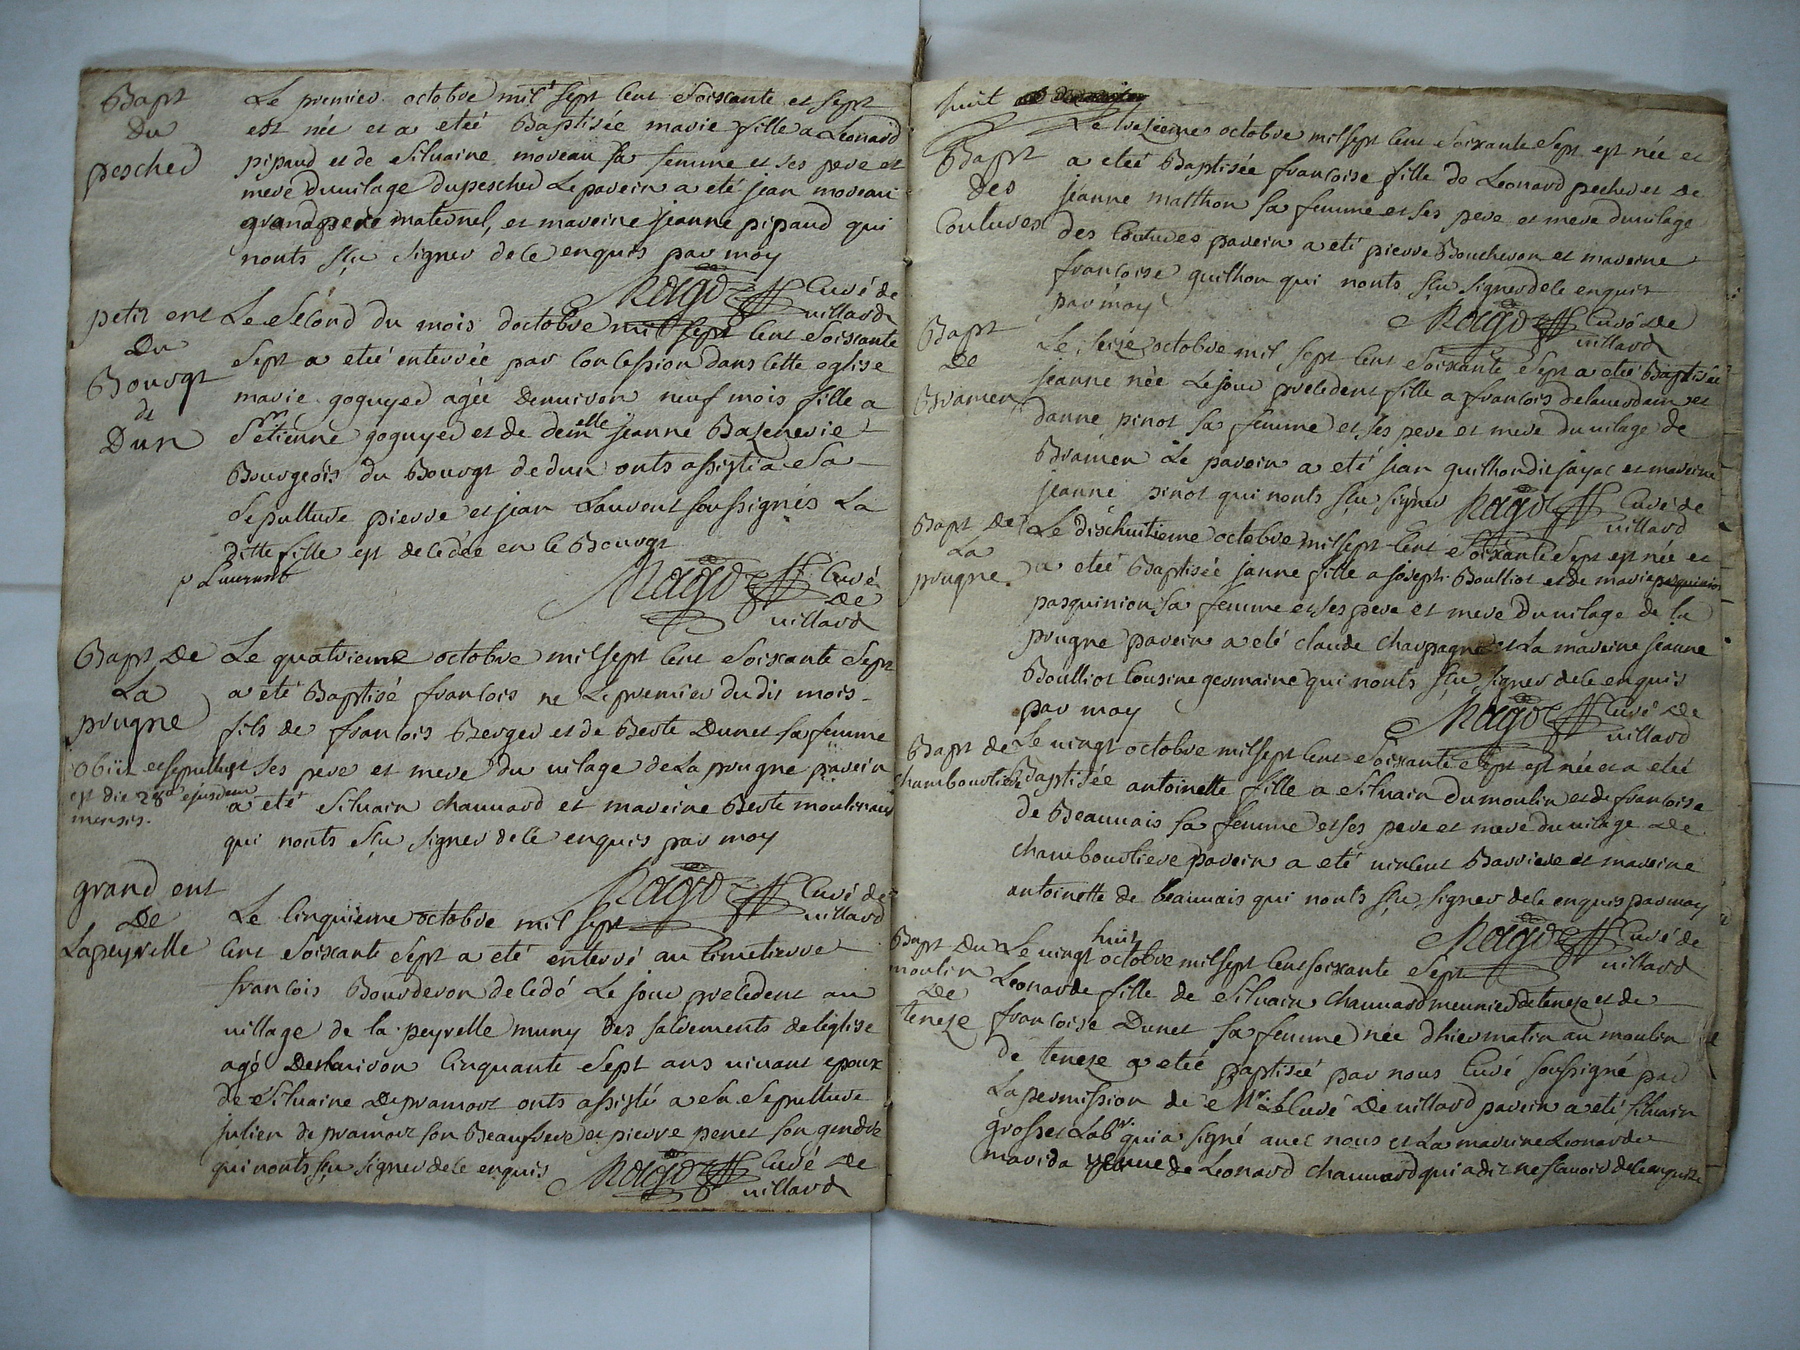 Bapt
du
pescher
Le premier octobre mil sept cent soixante et sept
est née et a eteé Baptisée marie fille a Leonard
pipaud et de Silvaine moreau sa femme et ses pere et
mere du vilage du pescher Le parein a eté jean moreau
grandpere maternel, et mareine jeanne pipaud qui
nonts sçu signer de ce enquis par moy
Ragot Curé de
villard
petit ent
Du
Bourgt
de
Dun
Le Second du mois doctobre mil sept cent soixante
sept a eteé enterrée par concession dans cette eglise
marie goguyer agée denviron neuf mois fille a
Sr etienne goguyer et de demelle jeanne Bazenerie
Bourgeois du Bourgt de dun onts assisté a sa
sepulture pierre et jean Laurent soussignés La
ditte fille est decedée en le Bourgt
p Laurent
Ragot Curé
de
villard
Bapt De
La
prugne
obiit et sepultus
est die 28a ejusdem
mensis.
Le quatrieme octobre mil sept cent soixante sept
a eté Baptisé francois ne Le premier du dit mois
fils de francois Berger et de Berte Dunet sa femme
et ses pere et mere du vilage de La prugne parein
a eté Silvain chaunard et mareine Berte
qui nonts sçu signer de ce enquis par moy
Ragot Curé de
villard
grand ent
De
Lapeyrelle
Le cinquieme octobre mil sept
cent soixante sept a eté enterré au cimetierre
francois Bourderon decedé Le jour precedent au
village de la peyrelle muny des sacrements de léglise
agé denviron cinquante sept ans vivant epoux
de Silvaine Depramort onts assisté a sa sepulture
julien de pramort son Beaufrere et pierre penet son gendre
qui nonts sçu signer de ce enquis Ragot Curé de
villard
huit
Bapt
des
Coutures
Le trezieme octobre mil sept cent soixante sept est née et
a eteé Baptisée francoise fille de Leonard pecher et de
jeanne matthon sa femme et ses pere et mere du vilage
des Coutures parein a eté pierre Boucheron et mareine
francoise guilhon qui nonts sçu signer de ce enquis
par moy
Ragot Curé de
villard
Bapt
de
Bramen
Le seize octobre mil sept cent soixante sept a eteé Baptisée
jeanne née Le jour precedent fille a francois delaverdam et
danne pinot sa femme et ses pere et mere du vilage de
Bramen Le parein a eté jean guilhon dit jayac et mareine
jeanne pinot qui nonts sçu signer Ragot Curé de
villard
Bapt de
La
prugne
Le dischuitieme octobre mil sept cent soixante sept est née et
a eteé Baptisée janne fille a joseph Boulliot et de marie
pasquinion sa femme et ses pere et mere du vilage de la
prugne parein a eté claude champagne et La mareine jeanne
Boulliot Cousine germaine qui nonts sçu signer de ce enquis
par moy
Ragot Curé de
villard
Bapt de
chamboutiere
Le vingt octobre mil sept cent soixante sept est née et a eteé
Baptisée antoinette fille a Silvain dumoulin et de francoise
de Beauvais sa femme et ses pere et mere du vilage de
chamboutiere parein a eté vincent Barriere et mareine
antoinette de beauvais qui nonts sçu signer de ce enquis par moy
Ragot Curé de
villard
Bapt du
moulin
De
teneze
huit
Le vingt octobre mil sept cent soixante sept
Leonarde fille de Silvain chaunard meunier de teneze et de
francoise Dunet sa femme née d'hier matin au moulin
de teneze a eteé baptiseé par nous Curé soussigné par
La permission de Mr. Le Curé de villard parein a eté Silvain
grosset Labr. qui a signé avec nous et La mareine Leonarde
marida veuve de Leonard chaunard qui a dit ne scavoir de ce enquise